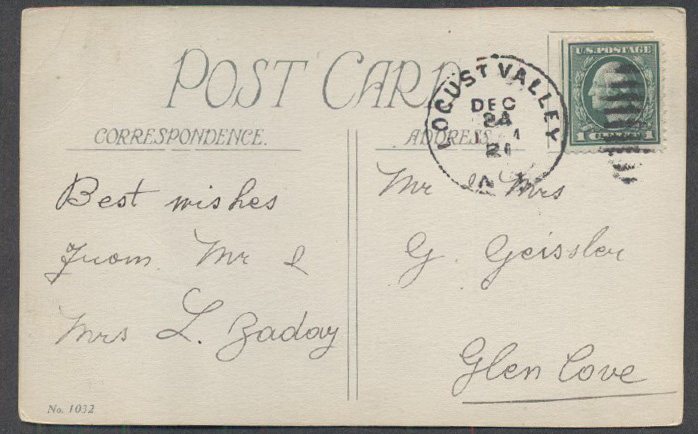 POST CARD
CORRESPONDENCE.
ADDRESS
LOCUST VALLEY
DEC
24
21
N.
U.S. POSTAGE
1 CENT 1
Best wishes
From Mr &
Mrs L. Zaday
Mr & Mrs
G. Geissler
Glen Cove
No. 1032